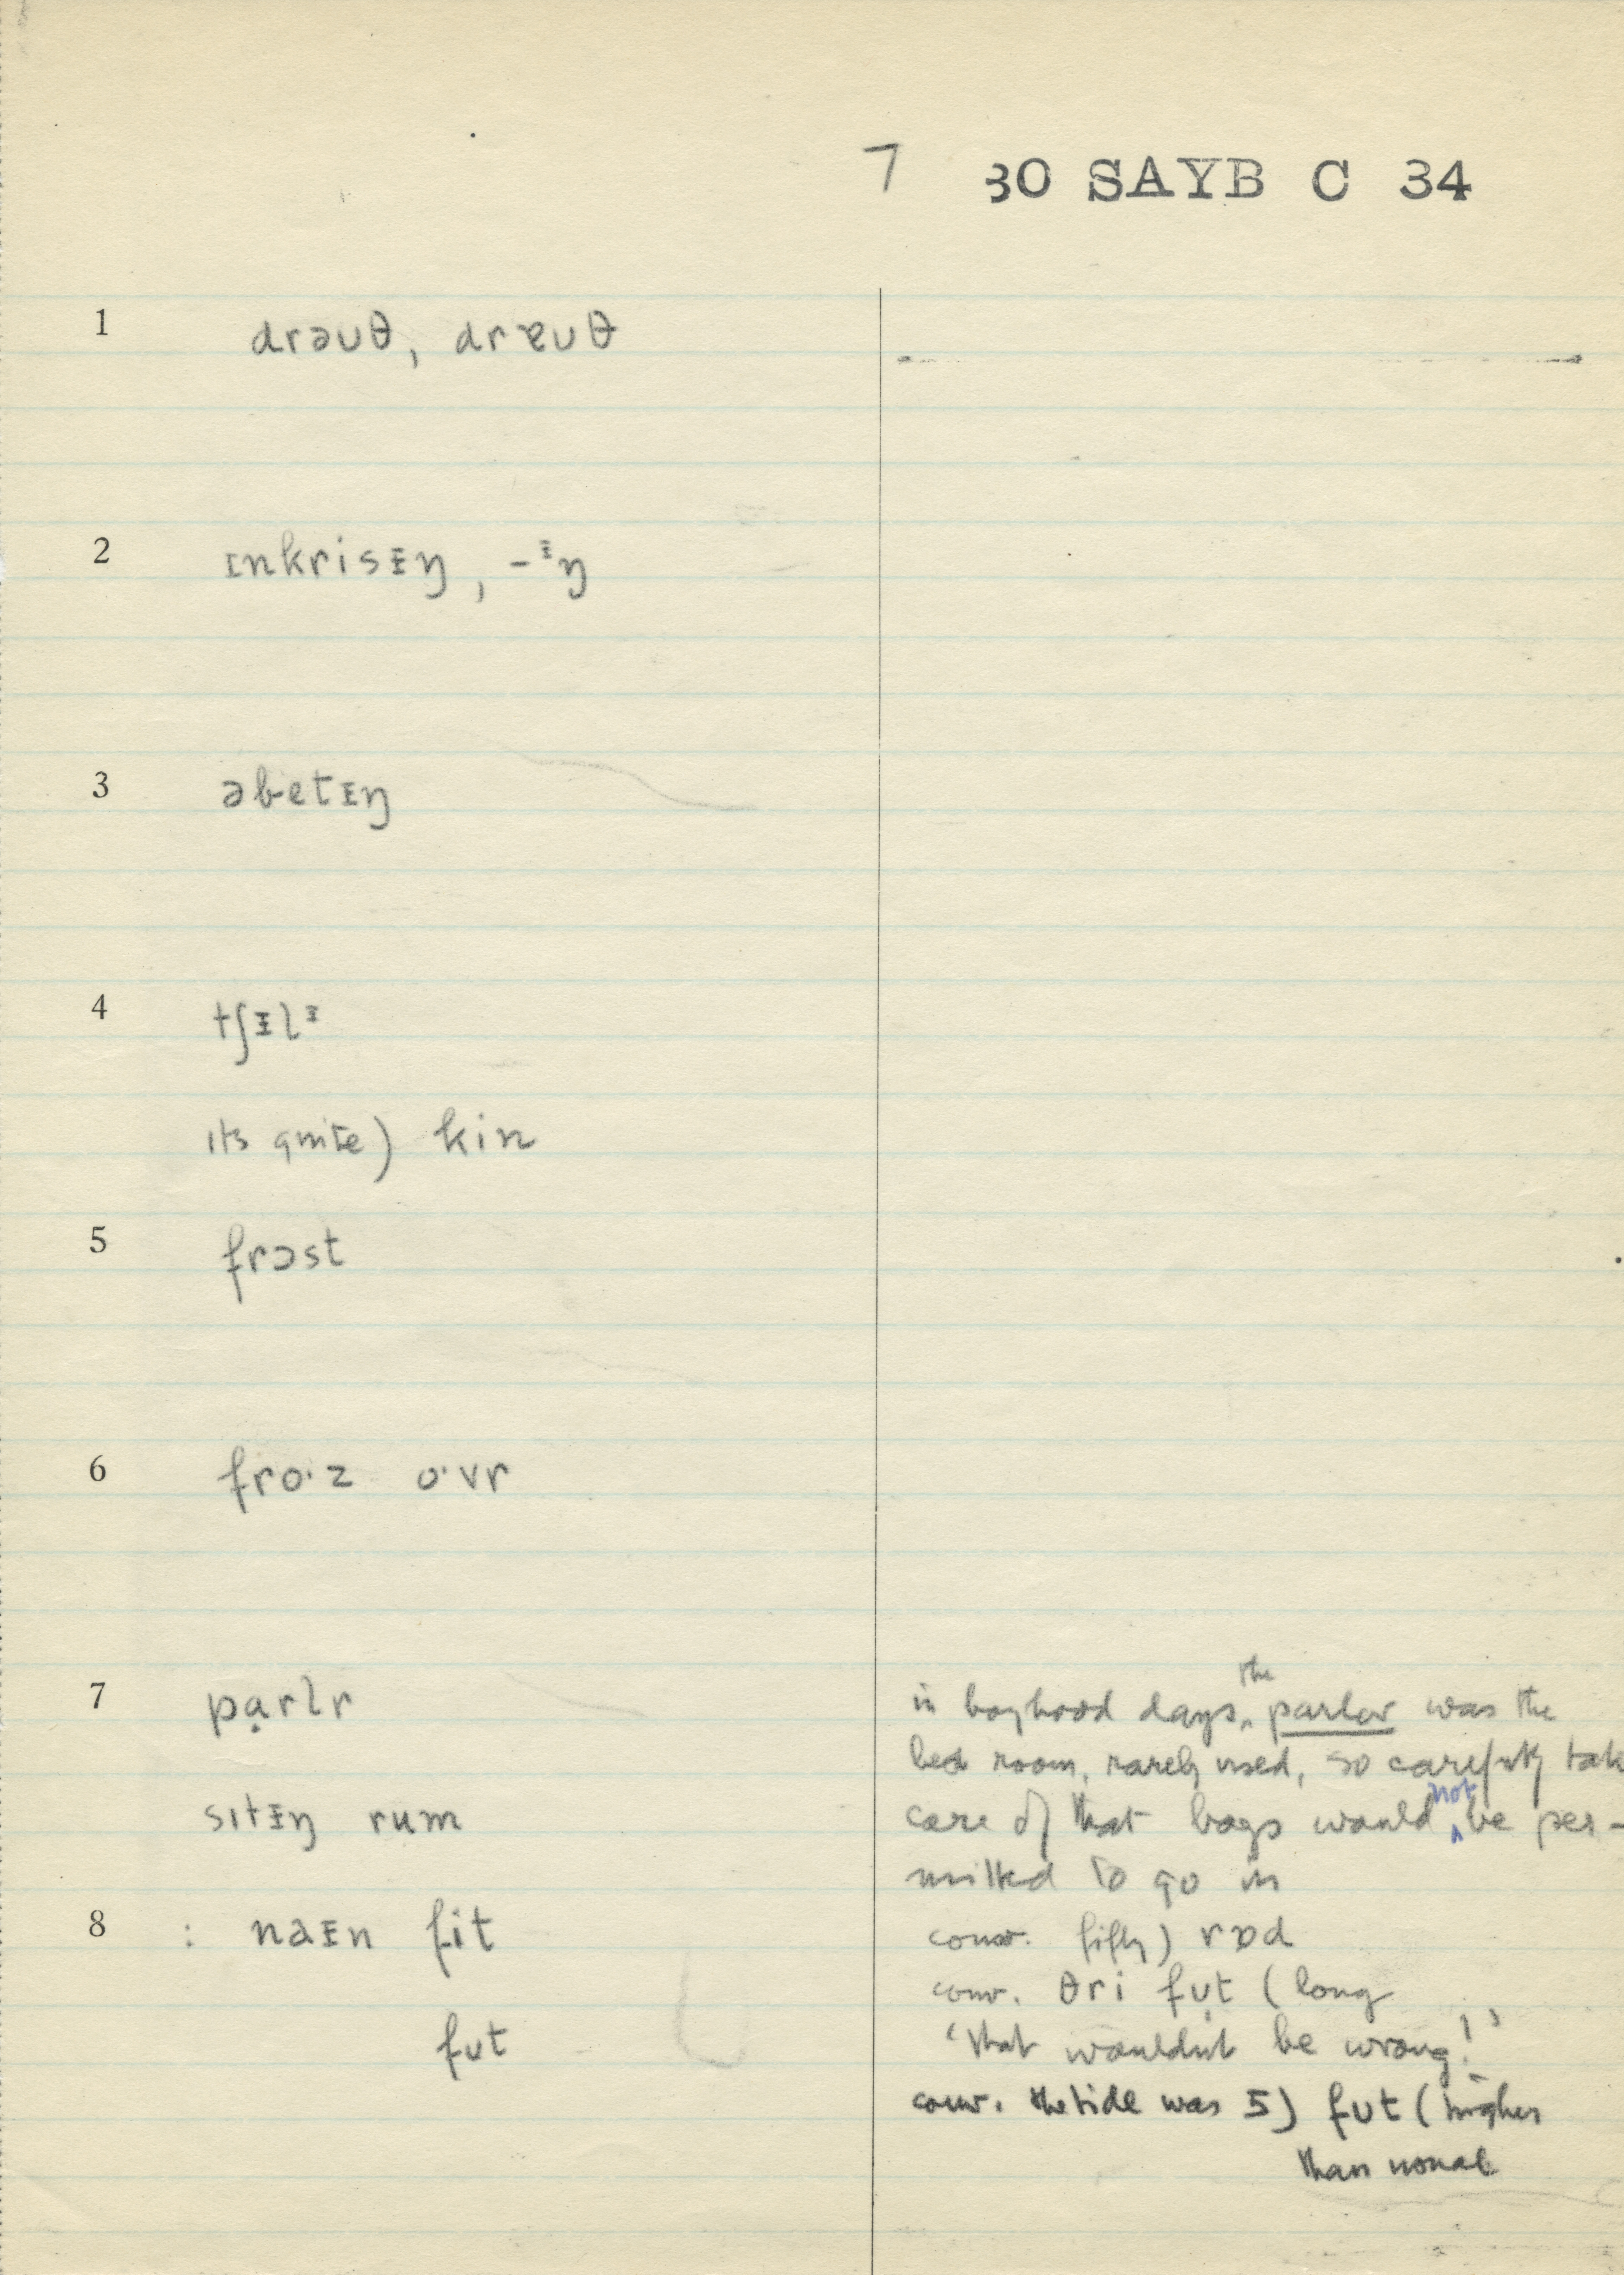 7 30 SAYB C 34
1 drəuθ, drɐuθ
2 ɪnkrisᵻŋ, -ᵻŋ
3 əbetᵻŋ
4 tʃᵻlᵻ
its quite) kin
5 frɔst
6 fro·z o·vr
7 pạrlr
sɪtᵻŋ rum
8 : naᵻn fit
fut
in boyhood days, the parlor was the
bed room, rarely used, so carefully tak
care of that boys would not be per-
mitted to go in
conv. fifty) rɒd
conv. θri fụt (long
'that wouldn't be wrong!'
conv. the tide was 5) fut (higher
than usual